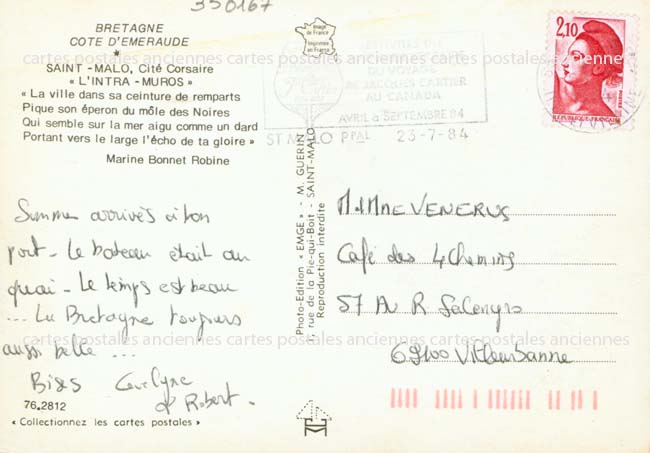 350167
BRETAGNE
COTE D'EMERAUDE
★
SAINT-MALO, Cité Corsaire
« L'INTRA-MUROS »
« La ville dans sa ceinture de remparts
Pique son éperon du môle des Noires
Qui semble sur la mer aigu comme un dard
Portant vers le large l'écho de ta gloire »
Marine Bonnet Robine
Image de France
Imprimée en France
DU VOYAGE
DE JACQUES CARTIER
AU CANADA
AVRIL à SEPTEMBRE 84
ST MALO PPAL 23-7-84
2,10
REPUBLIQUE FRANCAISE
cartes postales anciennes cartes postales anciennes cartes postales anciennes
Sommes arrivés à bon
port - Le bateau était au
quai - Le temps est beau
... La Bretagne toujours
aussi belle ...
Bises Evelyne
et Robert.
cartes postales anciennes cartes postales anciennes cartes postales anciennes
76.2812
« Collectionnez les cartes postales »
Photo-Edition « EMGE » - M. GUERIN
rue de la Pie-qui-Boit - SAINT-MALO
Reproduction interdite
M. Mme VENERUS
Café des 4 Chemins
57 Av R Salengro
69100 Villeurbanne